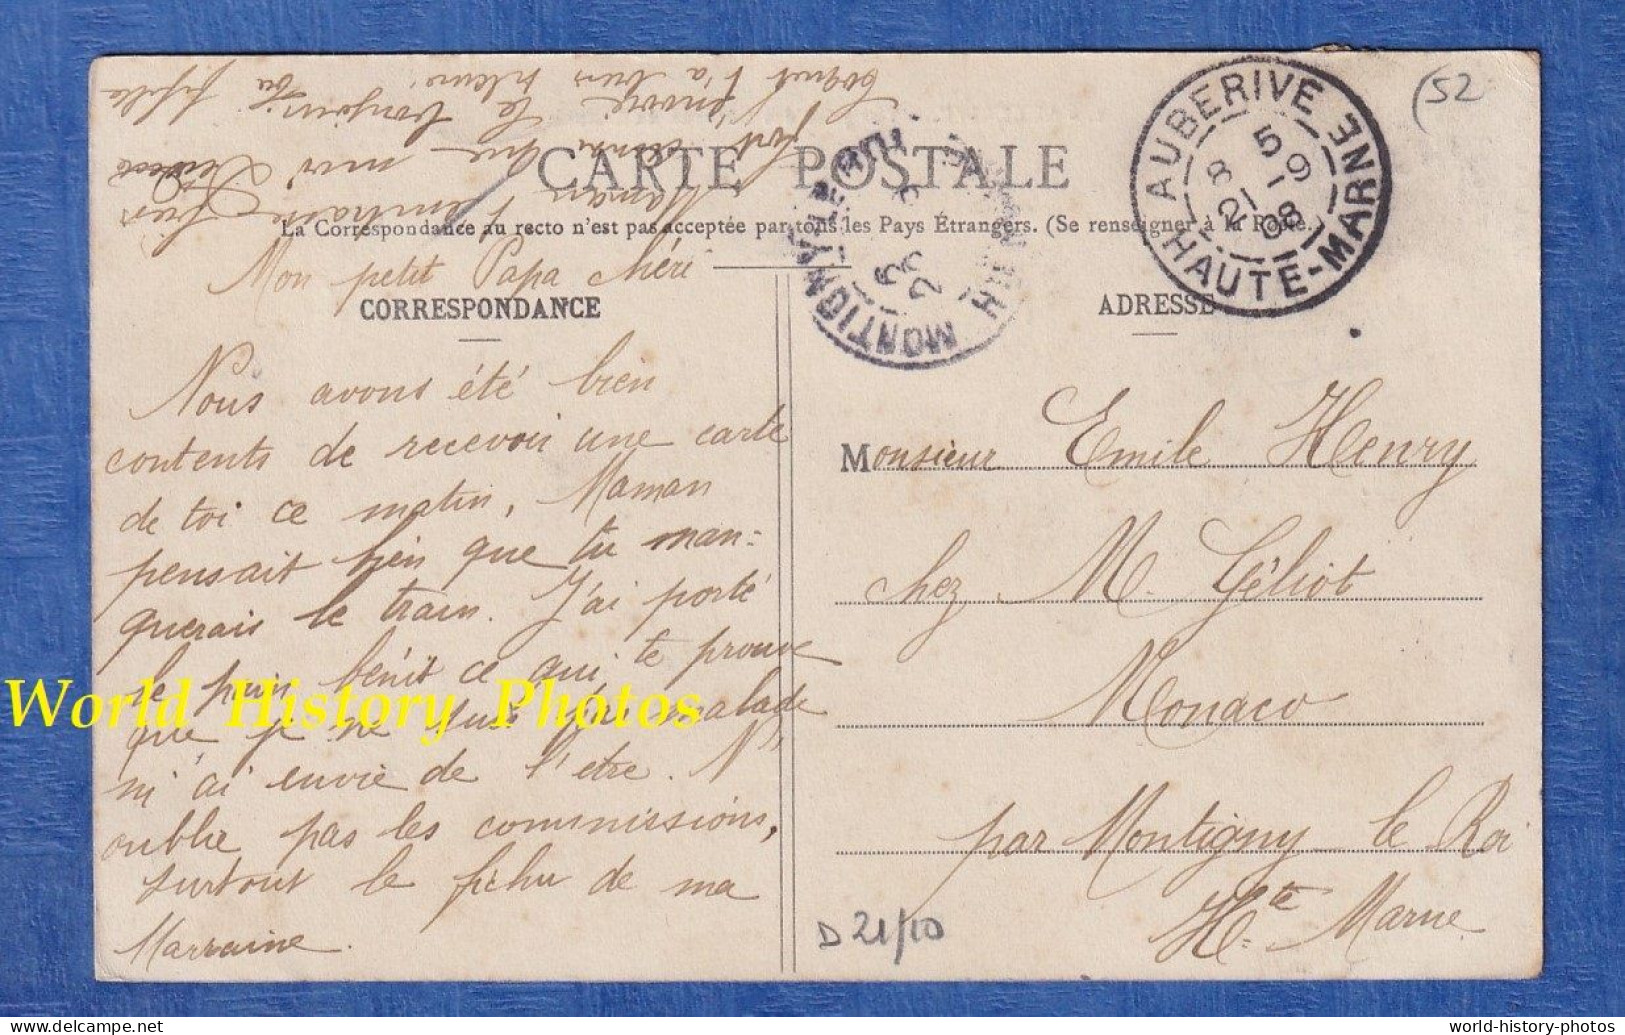 (52
AUBERIVE
HAUTE-MARNE
8 5
21 - 9
08
MONTIGNY-LE-ROI
Hte MARNE
CARTE POSTALE
La Correspondance au recto n'est pas acceptée par tous les Pays Étrangers. (Se renseigner à la Poste.
Mon petit Papa chéri
CORRESPONDANCE
ADRESSE
Nous avons été bien
contents de recevoir une carte
de toi ce matin, Maman
pensait bien que tu man-
querais le train. J'ai porté
le pain bénit ce qui te prouve
que je ne suis pas malade
ni ai envie de l'être. N'
oublie pas les commissions,
surtout le fichu de ma
Marraine.
Monsieur Emile Henry
chez M. Géliot
Monaco
par Montigny le Roi
Hte Marne
D 21/10
Maman
que moi
encore le bonjour
t'a bien
World History Photos
world-history-photos